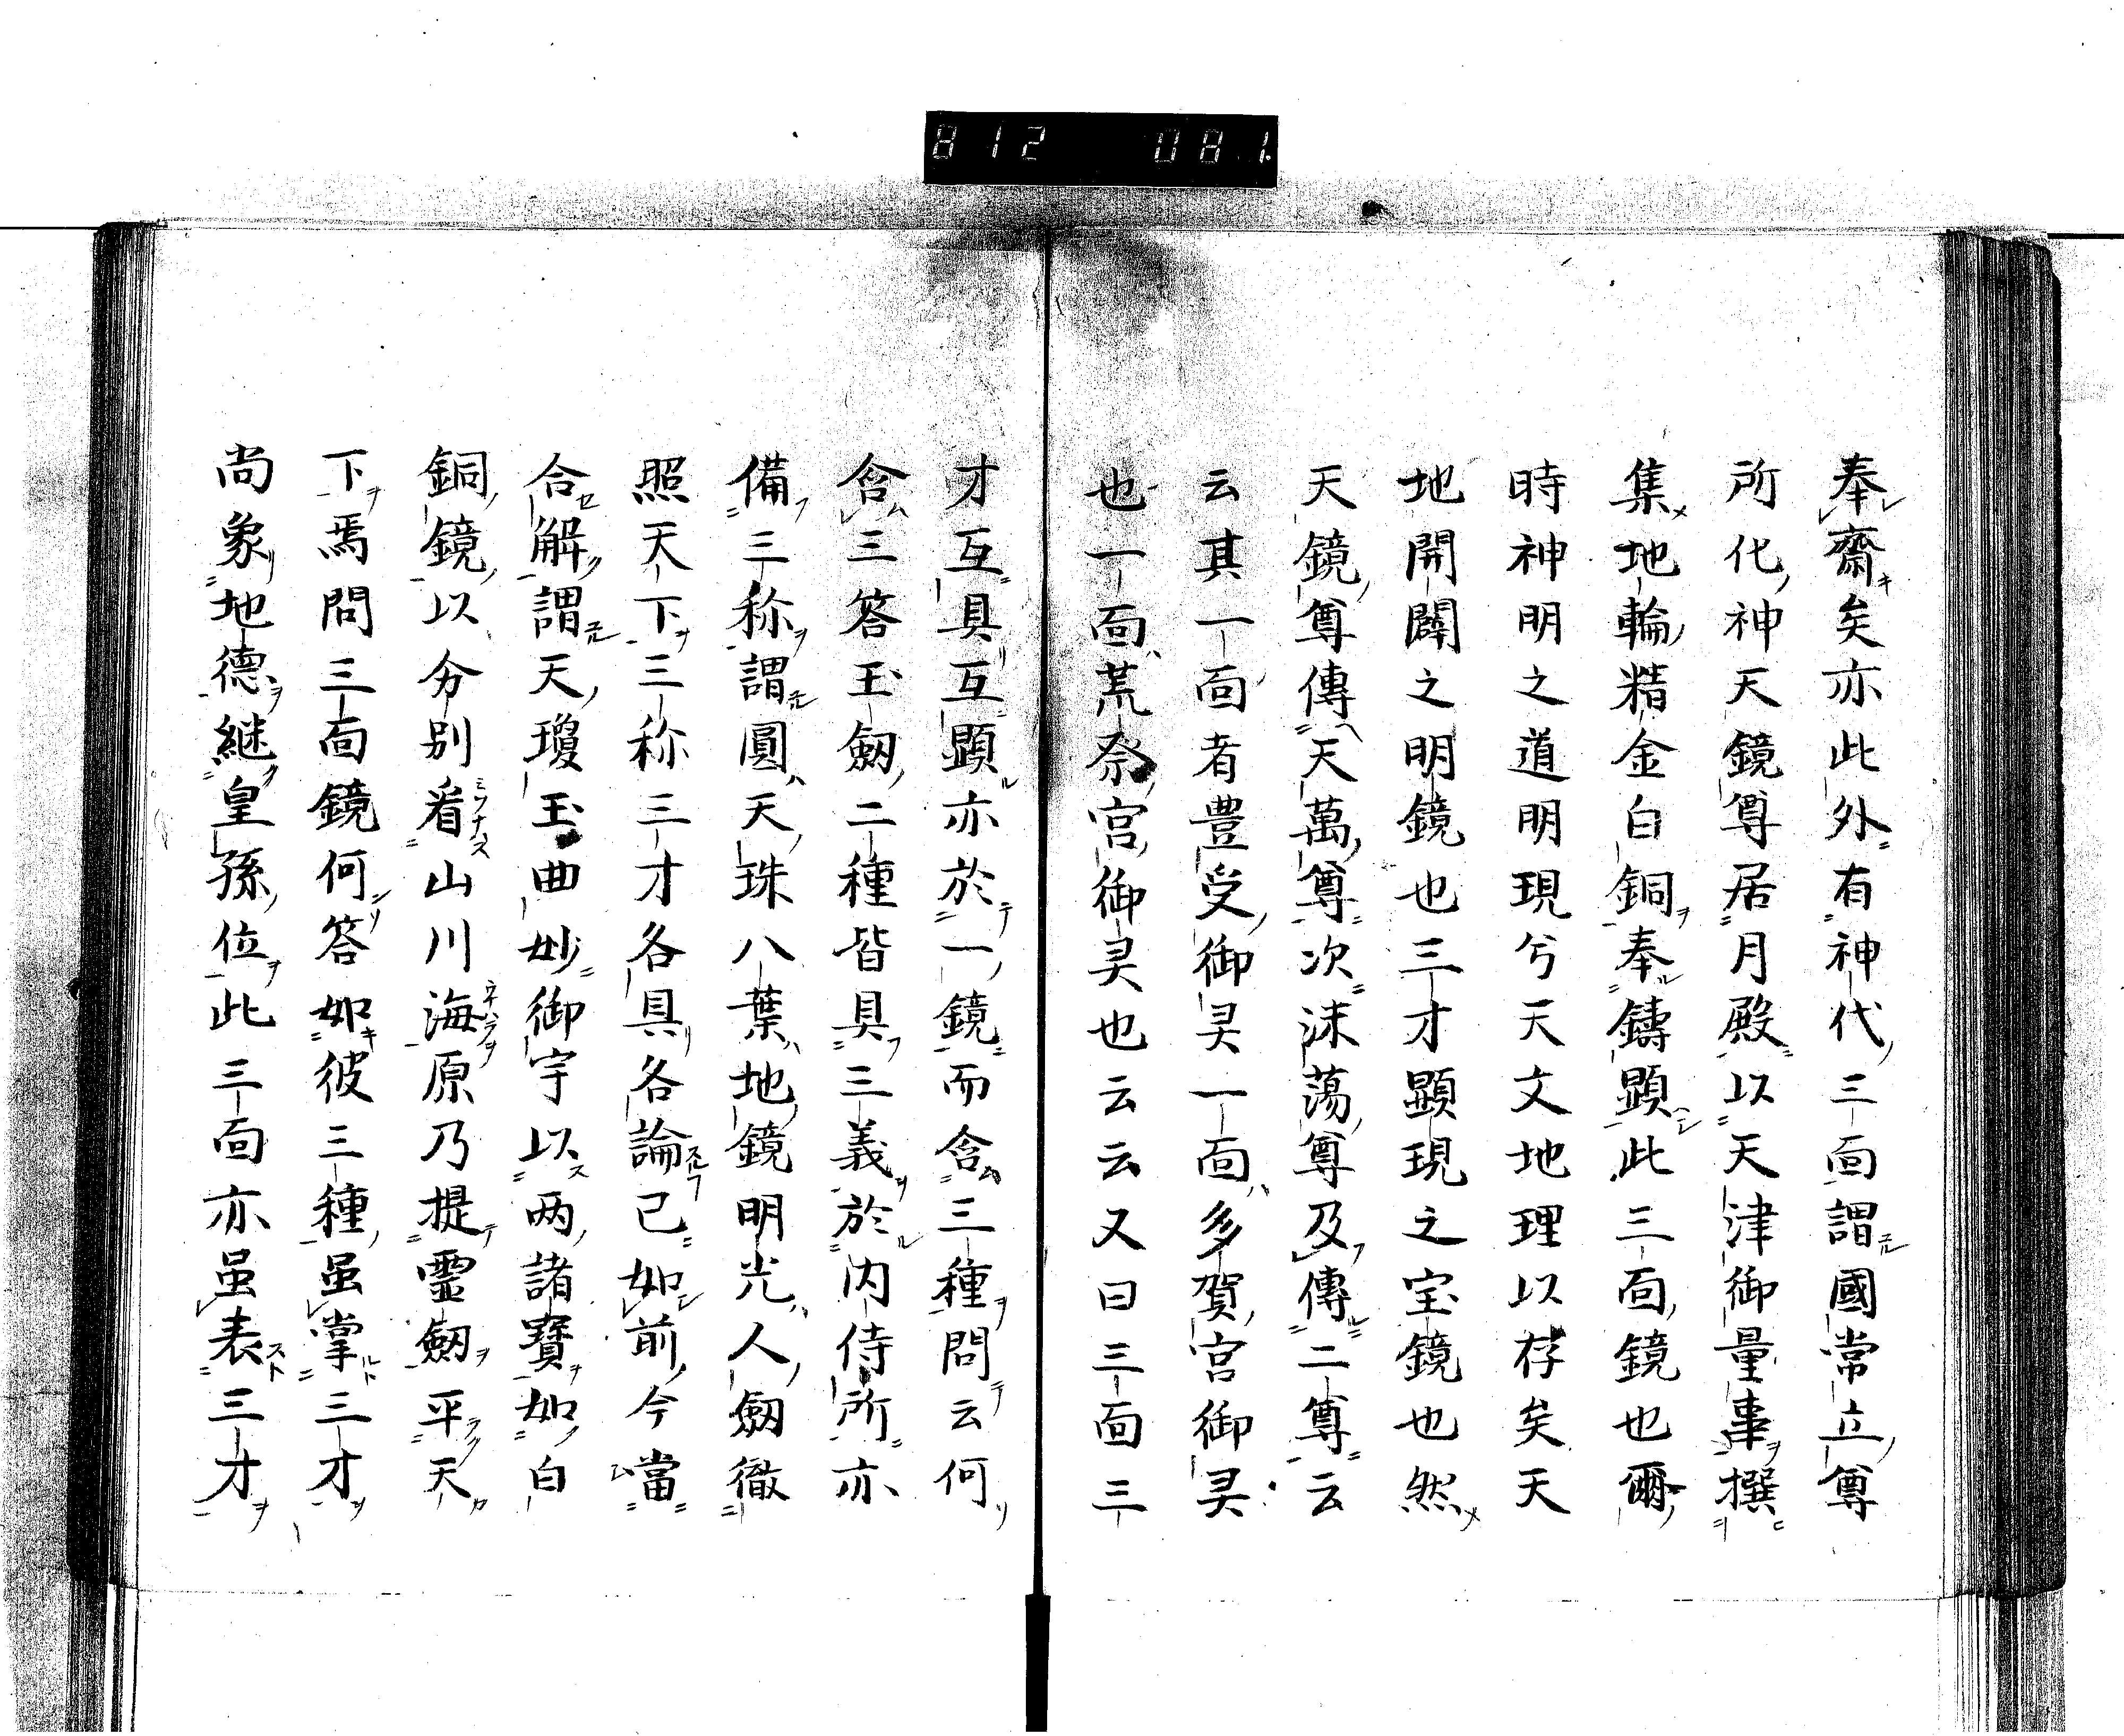 812 081
奉齋矣亦此外有神代三面謂國常立尊
所化神天鏡尊居月殿以天津御量事撰
集地輪精金白銅奉鑄顕此三面鏡也爾
時神明之道明現兮天文地理以存矣天
地開闢之明鏡也三才顕現之宝鏡也然
天鏡尊傳天萬尊次沫蕩尊及傳二尊云
云其一面者豊受御灵一面多賀宮御灵
也一面荒祭宮御灵也云云又曰三面三
才互具互顕亦於一鏡而含三種問云何
含三答玉劔二種皆具三義於内侍所亦
備三称謂圓天珠八葉地鏡明光人劔徹
照天下三称三才各具各論已如前今當
合解謂天瓊玉曲妙御宇以两諸寶如白
銅鏡以分別看山川海原乃提霊劔平天
下焉問三面鏡何答如彼三種虽掌三才
尚象地德継皇孫位此三面亦虽表三才